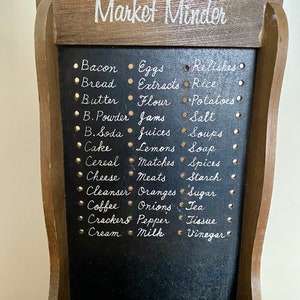 Market Minder
Bacon Eggs Relishes
Bread Extracts Rice
Butter Flour Potatoes
B. Powder Jams Salt
B. Soda Juices Soups
Cake Lemons Soap
Cereal Matches Spices
Cheese Meats Starch
Cleanser Oranges Sugar
Coffee Onions Tea
Crackers Pepper Tissue
Cream Milk Vinegar